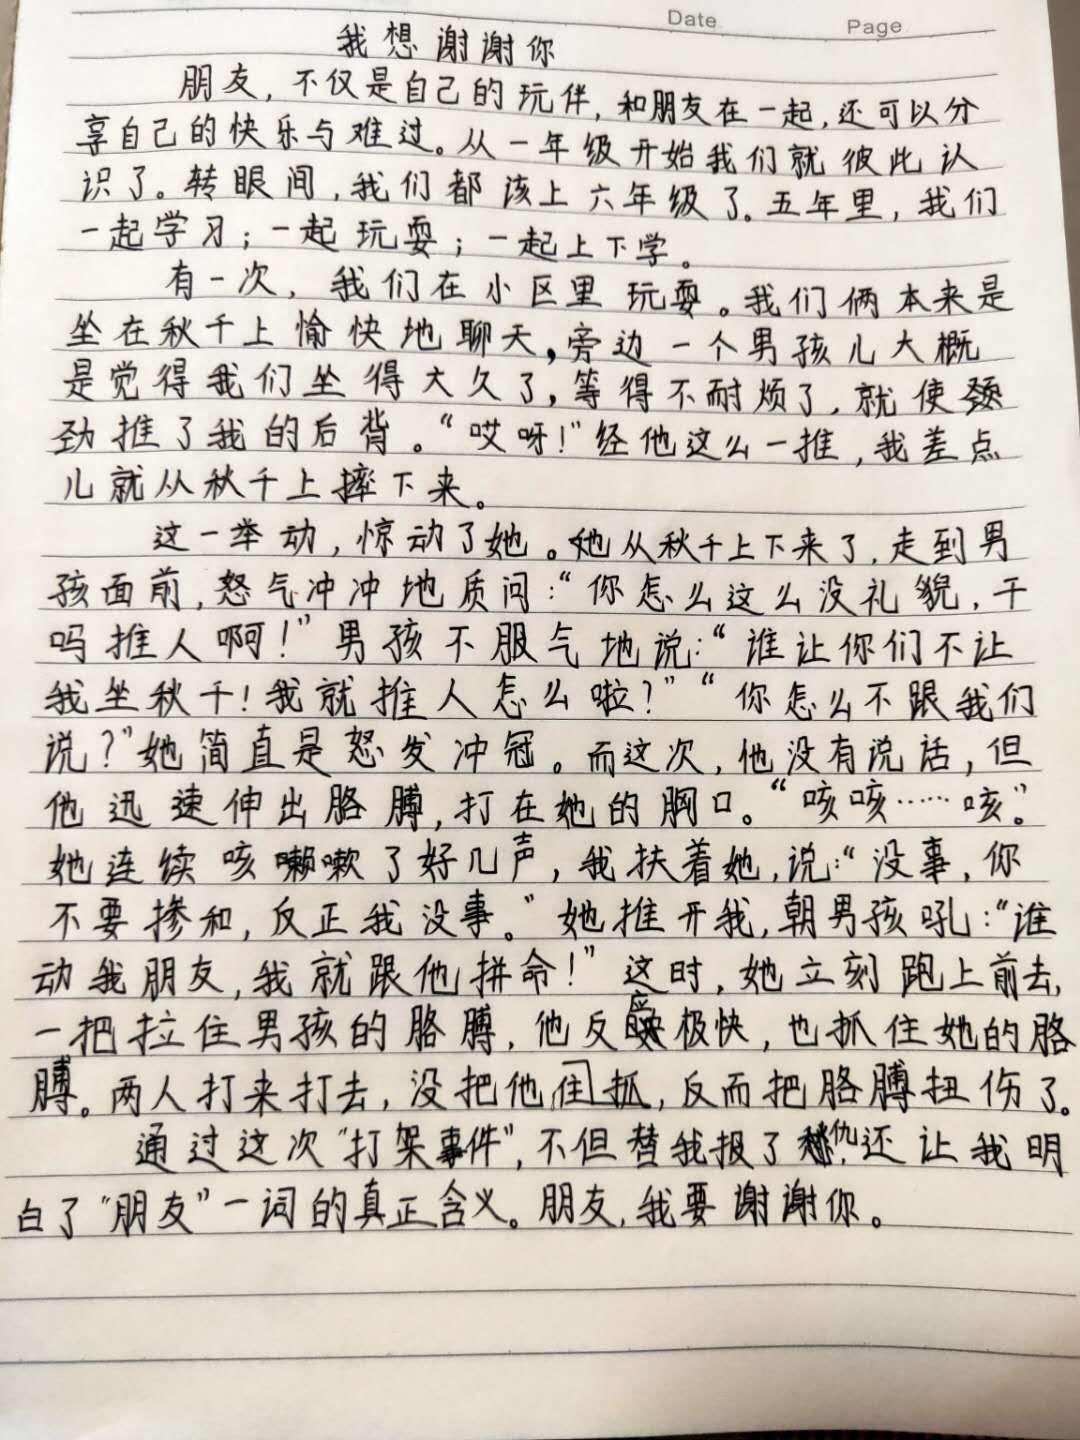 Date
Page
我想谢谢你
朋友，不仅是自己的玩伴，和朋友在一起，还可以分
享自己的快乐与难过。从一年级开始我们就彼此认
识了。转眼间，我们都该上六年级了。五年里，我们
一起学习；一起玩耍；一起上下学。
有一次，我们在小区里玩耍。我们俩本来是
坐在秋千上愉快地聊天，旁边一个男孩儿大概
是觉得我们坐得太久了，等得不耐烦了，就使
劲推了我的后背。“哎呀！”经他这么一推，我差点
儿就从秋千上摔下来。
这一举动，惊动了她。她从秋千上下来了，走到男
孩面前，怒气冲冲地质问：“你怎么这么没礼貌，干
吗推人啊！”男孩不服气地说：“谁让你们不让
我坐秋千！我就推人怎么啦？”“你怎么不跟我们
说？”她简直是怒发冲冠。而这次，他没有说话，但
他迅速伸出胳膊，打在她的胸口。“咳咳……咳。”
她连续咳嗽了好几声，我扶着她，说：“没事，你
不要掺和，反正我没事。”她推开我，朝男孩吼：“谁
动我朋友，我就跟他拼命！”这时，她立刻跑上前去，
一把拉住男孩的胳膊，他反应极快，也抓住她的胳
膊。两人打来打去，没把他住抓，反而把胳膊扭伤了。
通过这次“打架事件”，不但替我报了仇，还让我明
白了“朋友”一词的真正含义。朋友，我要谢谢你。